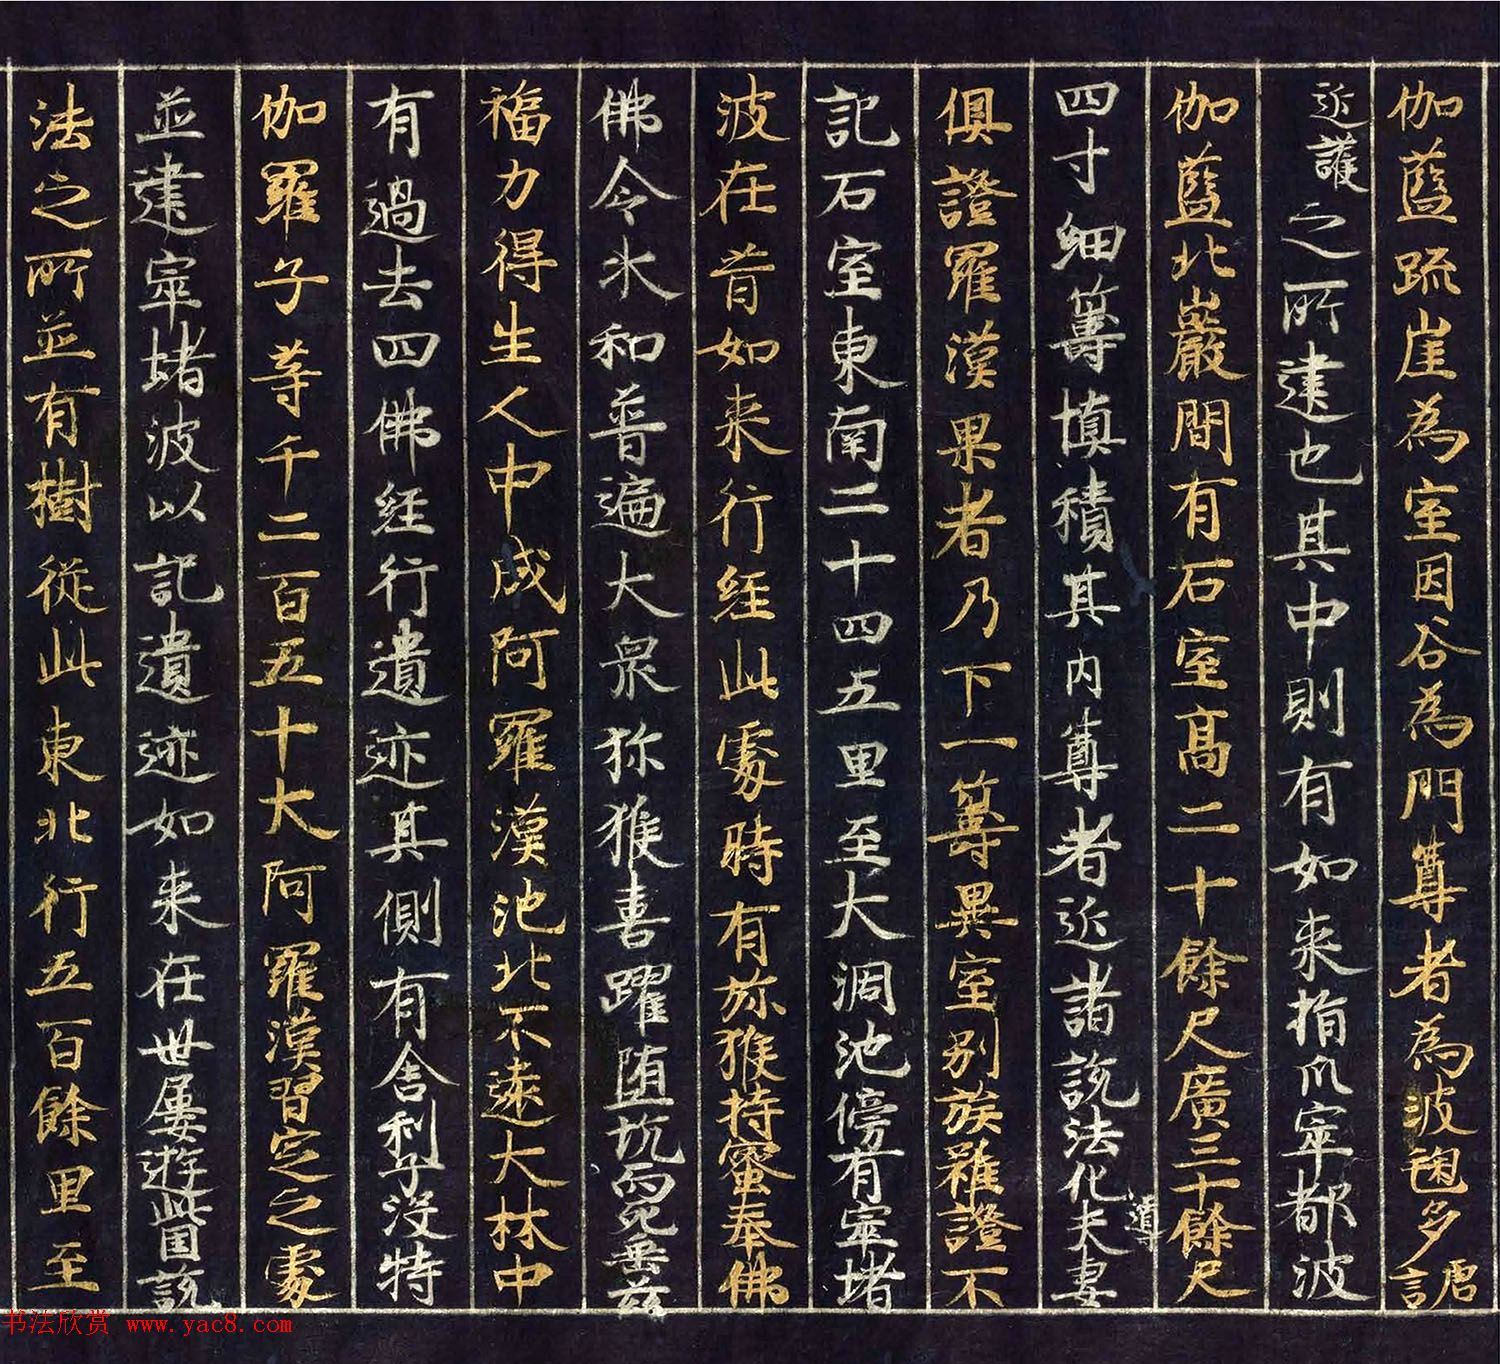 伽藍疏崖為室因谷為門尊者為波毱多唐言
近護之所建也其中則有如来指爪窣都波
伽藍北巖間有石室高二十餘尺廣三十餘尺
四寸細籌填積其内尊者近諸說法化導夫妻
俱證羅漢果者乃下一籌異室別族雖證不
記石室東南二十四五里至大涸池傍有窣堵
波在昔如来行經此處時有狝猴持蜜奉佛
佛令水和普遍大衆狝猴喜躍堕坑而死乗茲
福力得生人中成阿羅漢池北不遠大林中
有過去四佛經行遺迹其側有舎利子没特
伽羅子等千二百五十大阿羅漢習定之處
並建窣堵波以記遺迹如来在世屢遊此国説
法之所並有樹從此東北行五百餘里至
书法欣赏 www.yac8.com